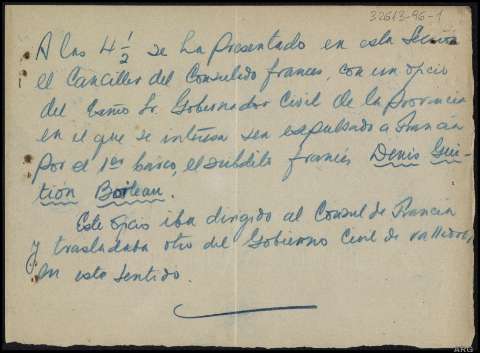 32613-96-1
A las 4 1/2 se ha presentado en esta
el Canciller del Consulado frances, con un oficio
del Exmo Sr. Gobernador Civil de la provincia
en el que se interesa sea expulsado a Francia
por el 1er barco, el subdito francés Denis Gui-
tión Boileau.
Este oficio iba dirigido al Consul de Francia
y trasladaba otro del Gobierno Civil de Valladolid,
en este sentido.
ARG